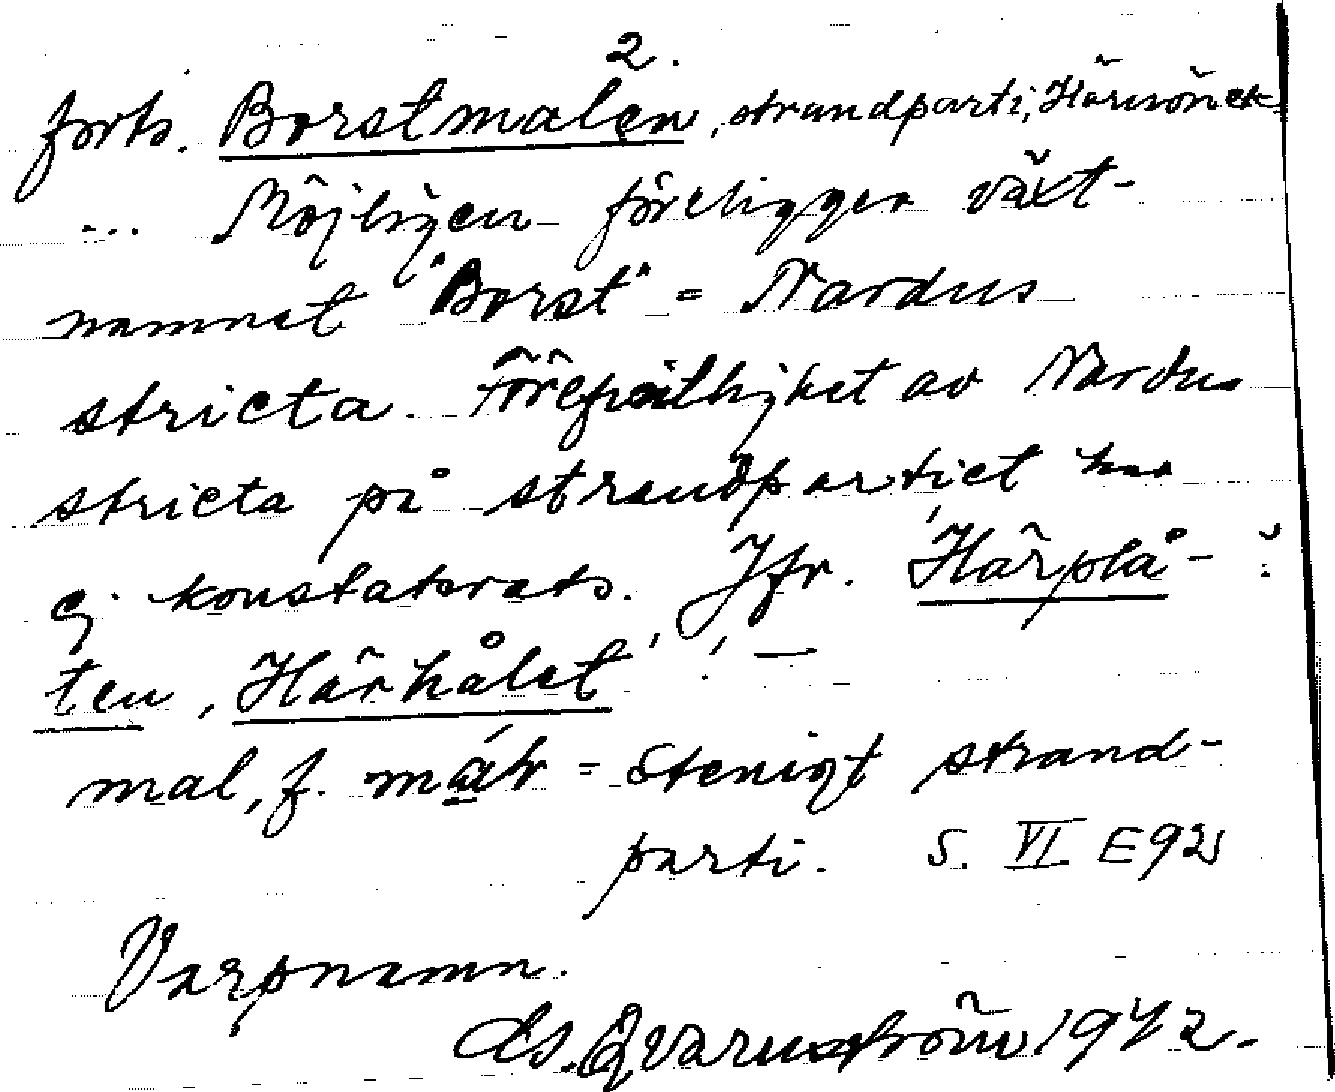 2.
forts. Borstmalen, strandparti, Härnön ek
... Möjligen föreligger växt-
namnet "Borst" = Nardus
stricta. Förefintlighet av Nardus
stricta på strandpartiet har
ej konstaterats. Jfr. Härplå-
ten, Härhålet! -
mal, f. = stenigt strand-
parti. S. VI E92
Varpnamn.
Qvarnström 1942.